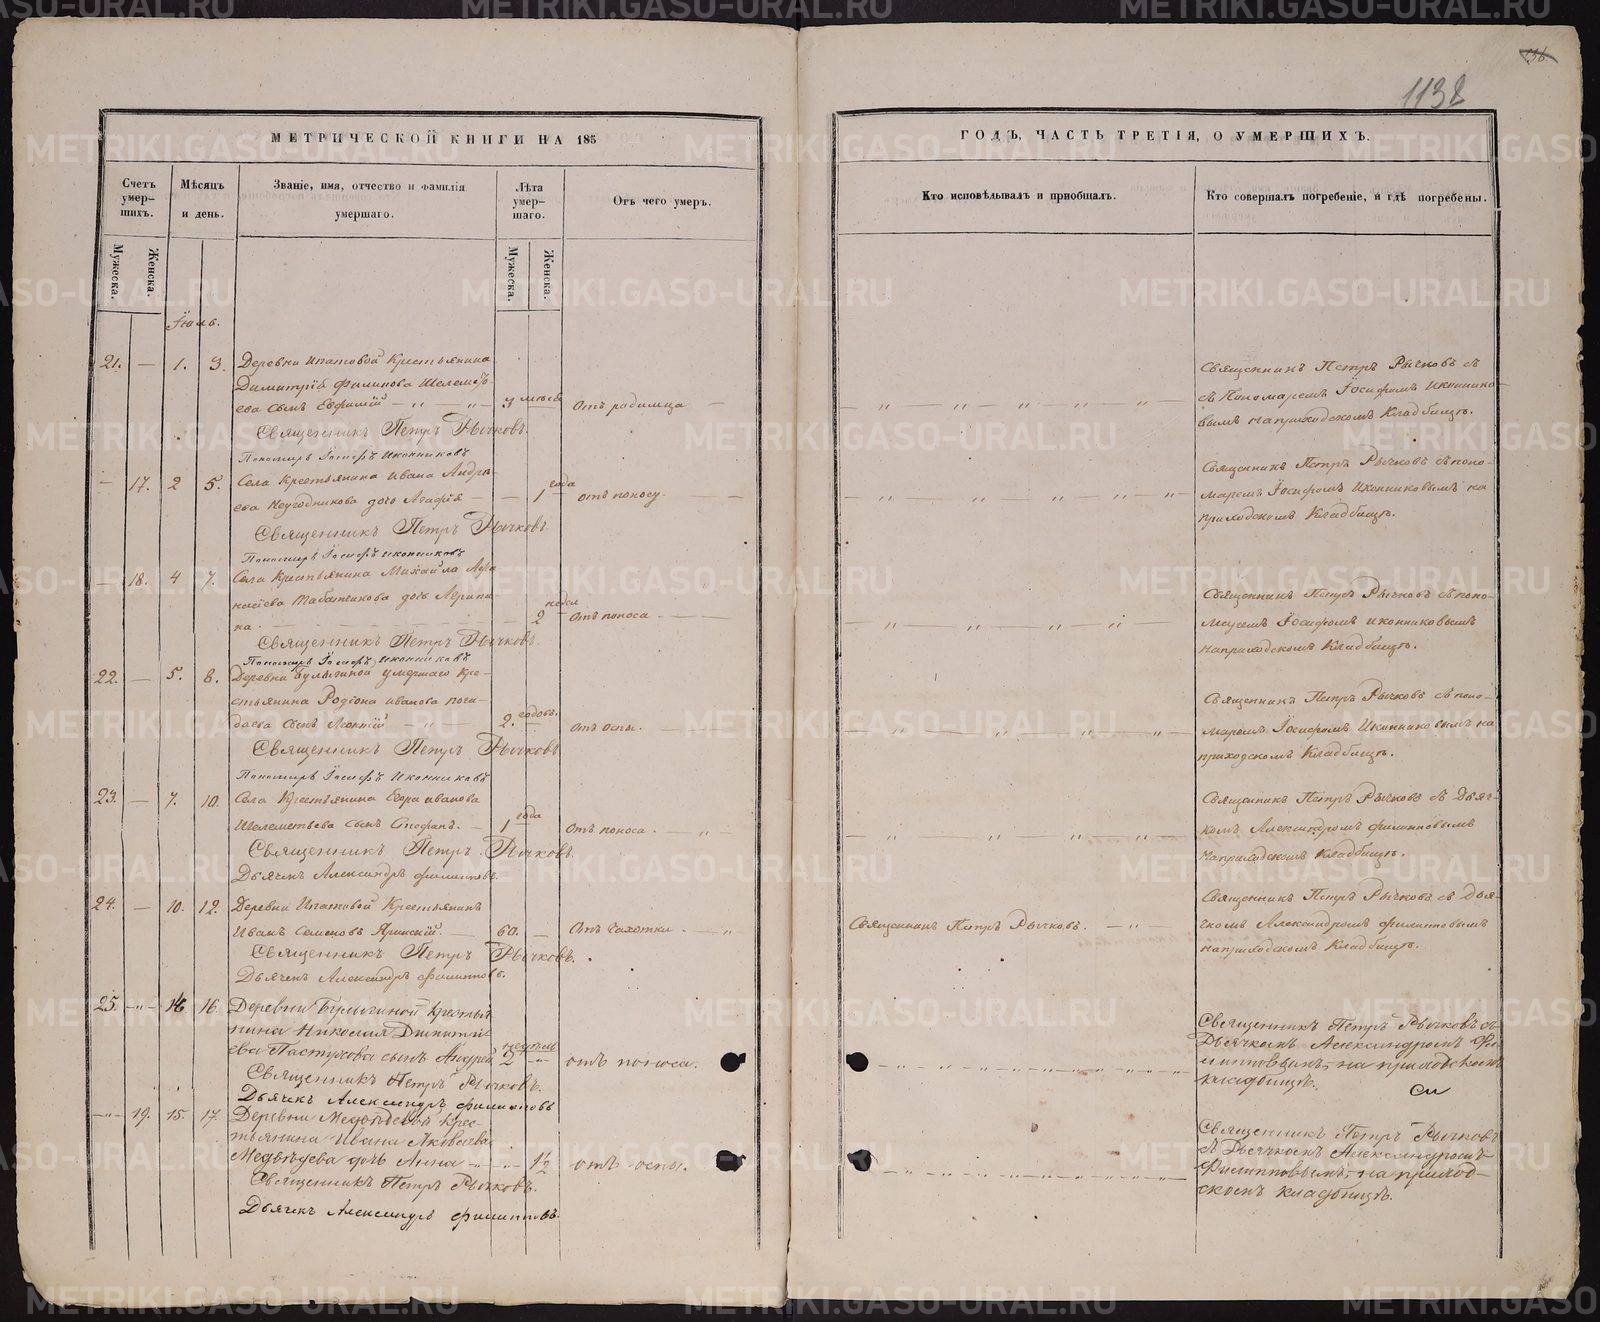 136
1138
МЕТРИЧЕСКОЙ КНИГИ НА 185
ГОДЪ, ЧАСТЬ ТРЕТІЯ, О УМЕРШИХЪ.
Счетъ умер-
шихъ.
Мужеска.
Женска.
Мѣсяцъ
и день.
Званіе, имя, отчество и фамилія
умершаго.
Лѣта
умер-
шаго.
Мужеска.
Женска.
Отъ чего умеръ.
Кто исповѣдывалъ и пріобщалъ.
Кто совершалъ погребеніе, и гдѣ погребены.
Іюль.
21. — 1. 3. Деревни Ипатовой Крестьянина
Димитрія Филипова Шелеметь-
ева сынъ Евфимій — 〃 — 〃 — мѣсяц Отъ родимца —
Священникъ Петръ Рычковъ.
Пономарь Іосифъ Иконниковъ
Священникъ Петръ Рычковъ съ
съ Пономаремъ Іосифомъ Иконнико-
вымъ на приходскомъ Кладбищѣ.
— 17. 2 5. Села Крестьянина Ивана Андре-
ева Неугодникова дочь Агафія — — 1 года отъ поносу. —
Священникъ Петръ Рычковъ
Пономарь Іосифъ Иконниковъ
Священникъ Петръ Рычковъ съ поно-
маремъ Іосифомъ Иконниковымъ на
приходскомъ Кладбищѣ.
— 18. 4 7. Села Крестьянина Михайла Афа-
насіева Табатчикова дочь Агрипи-
на — 2 недел Отъ поноса —
Священникъ Петръ Рычковъ.
Пономарь Іосифъ Иконниковъ
Священникъ Петръ Рычковъ съ поно-
маремъ Іосифомъ Иконниковымъ
на приходскомъ Кладбищѣ.
22. — 5. 8. Деревни Булыгиной умершаго Кре-
стьянина Родіона Иванова
сынъ Леонтій — 〃 — 2. годовъ. Отъ оспы. —
Священникъ Петръ Рычковъ
Пономарь Іосифъ Иконниковъ
Священникъ Петръ Рычковъ съ поно-
маремъ Іосифомъ Иконниковымъ на
приходскомъ Кладбищѣ.
23. — 7. 10. Села Крестьянина Егора Иванова
Шелеметьева сынъ Стефанъ. — 1 года Отъ поноса. — 〃 —
Священникъ Петръ Рычковъ
Дьячекъ Александръ Филиповъ.
Священникъ Петръ Рычковъ съ Дьяч-
комъ Александромъ Филиповымъ
на приходскомъ Кладбищѣ.
24. — 10. 12. Деревни Ипатовой Крестьянинъ
Иванъ Семеновъ — 60. — Отъ Чахотки. — 〃
Священникъ Петръ Рычковъ.
Дьячекъ Александръ Филиповъ.
Священникъ Петръ Рычковъ. — 〃 —
Священникъ Петръ Рычковъ съ Дья-
чкомъ Александромъ Филиповымъ
на приходскомъ Кладбищѣ.
25. —〃— 14 16. Деревни Булыгиной крестья-
нина Николая Димитрі-
ева Пастухова сынъ Андрей 2 недѣли —〃— отъ поноса.
Священникъ Петръ Рычковъ.
Дьячекъ Александръ Филиповъ
Священникъ Петръ Рычковъ съ
Дьячкомъ Александромъ Фи-
липповымъ, на приходскомъ
кладбищѣ.
—〃— 19. 15. 17. Деревни Медвѣдевой крес-
тьянина Ивана Яковлева
Медвѣдева дочь Анна — 〃 — 1½ отъ оспы.
Священникъ Петръ Рычковъ.
Дьячекъ Александръ Филиповъ.
Священникъ Петръ Рычковъ
съ Дьячкомъ Александромъ
Филипповымъ, на приход-
скомъ кладбищѣ.
METRIKI.GASO-URAL.RU